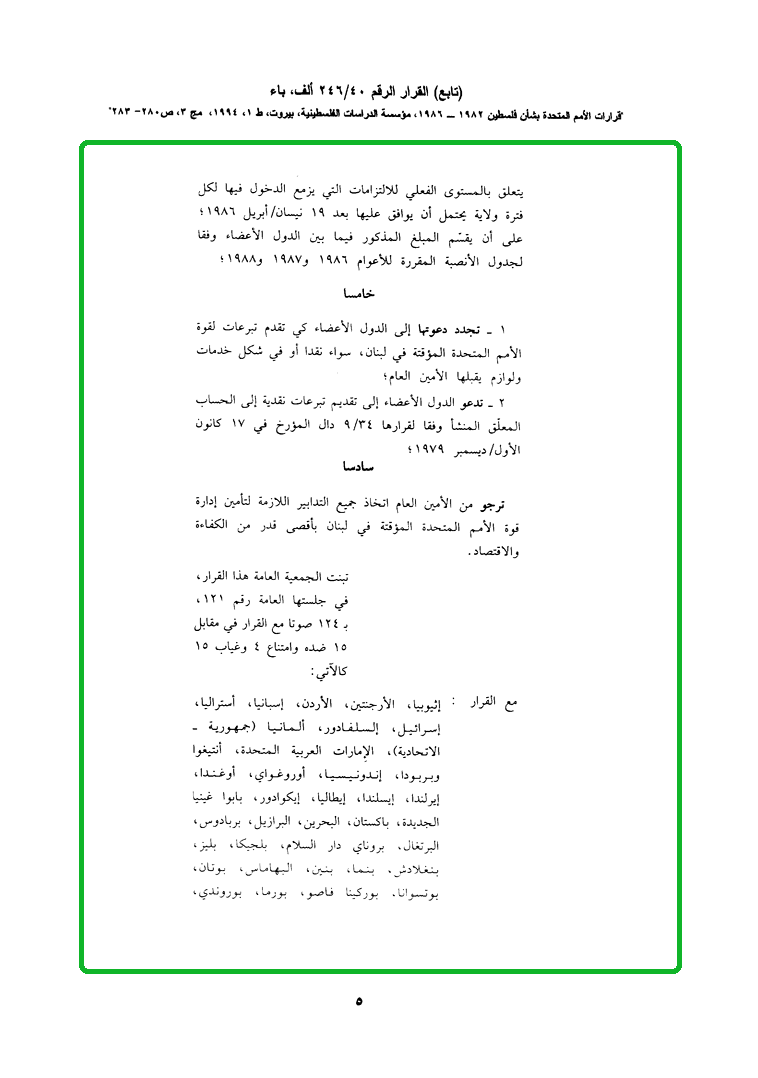 (تابع) القرار الرقم ٢٤٦/٤٠ ألف، باء
"قرارات الأمم المتحدة بشأن فلسطين ١٩٨٢ ــ ١٩٨٦، مؤسسة الدراسات الفلسطينية، بيروت، ط ١، ١٩٩٤، مج ٣، ص٢٨٠- ٢٨٣"
يتعلق بالمستوى الفعلي للالتزامات التي يزمع الدخول فيها لكل
فترة ولاية يحتمل أن يوافق عليها بعد ١٩ نيسان/أبريل ١٩٨٦؛
على أن يقسّم المبلغ المذكور فيما بين الدول الأعضاء وفقا
لجدول الأنصبة المقررة للأعوام ١٩٨٦ و١٩٨٧ و١٩٨٨؛
خامسا
١ ـ تجدد دعوتها إلى الدول الأعضاء كي تقدم تبرعات لقوة
الأمم المتحدة المؤقتة في لبنان، سواء نقدا أو في شكل خدمات
ولوازم يقبلها الأمين العام؛
٢ ـ تدعو الدول الأعضاء إلى تقديم تبرعات نقدية إلى الحساب
المعلّق المنشأ وفقا لقرارها ٩/٣٤ دال المؤرخ في ١٧ كانون
الأول/ديسمبر ١٩٧٩؛
سادسا
ترجو من الأمين العام اتخاذ جميع التدابير اللازمة لتأمين إدارة
قوة الأمم المتحدة المؤقتة في لبنان بأقصى قدر من الكفاءة
والاقتصاد.
تبنت الجمعية العامة هذا القرار،
في جلستها العامة رقم ١٢١،
بـ ١٢٤ صوتا مع القرار في مقابل
١٥ ضده وامتناع ٤ وغياب ١٥
كالآتي:
مع القرار : إثيوبيا، الأرجنتين، الأردن، إسبانيا، أستراليا،
إسرائيل، إلسلفادور، ألمانيا (جمهورية ـ
الاتحادية)، الإمارات العربية المتحدة، أنتيغوا
وبربودا، إندونيسيا، أوروغواي، أوغندا،
إيرلندا، إيسلندا، إيطاليا، إيكوادور، بابوا غينيا
الجديدة، باكستان، البحرين، البرازيل، بربادوس،
البرتغال، بروناي دار السلام، بلجيكا، بليز،
بنغلادش، بنما، بنين، البهاماس، بوتان،
بوتسوانا، بوركينا فاصو، بورما، بوروندي،
٥